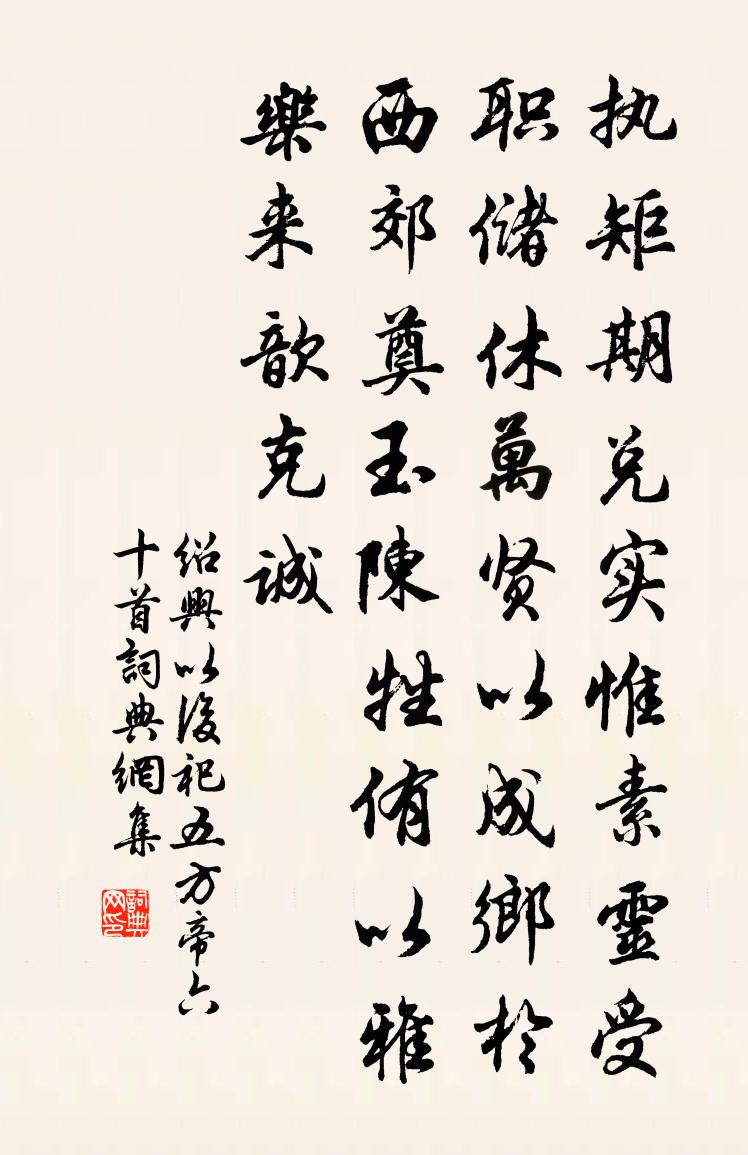 执矩期兑实惟素靈受
职储休萬贤以成鄉於
西郊奠玉陳牲侑以雅
樂来歆克誠
绍興以後祀五方帝六
十首詞典網集
詞典网印